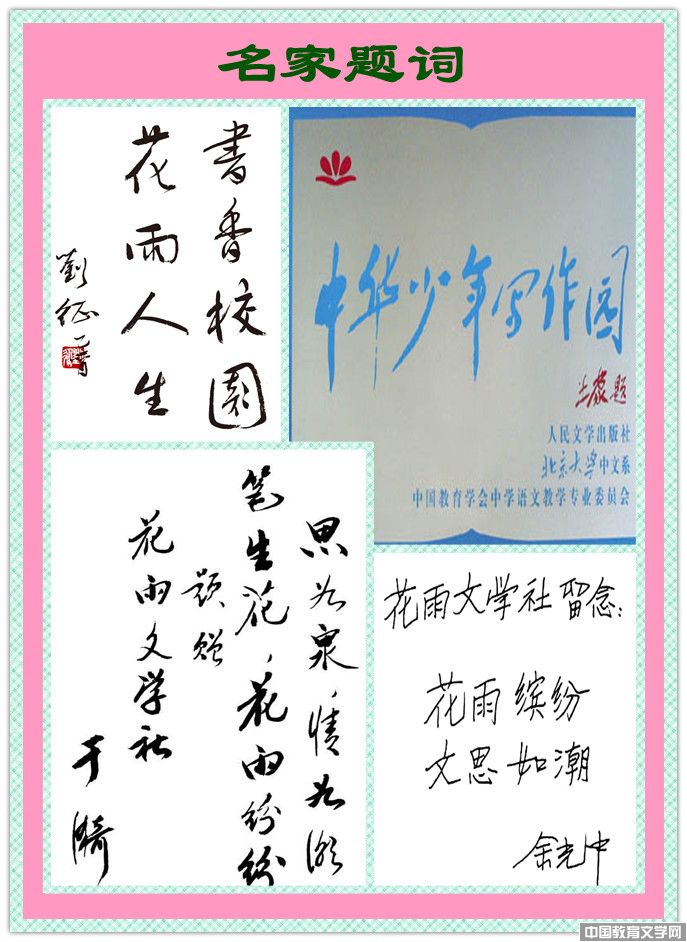 名家题词
書香校園
花雨人生
劉征
中华少年写作园
题
人民文学出版社
北京大学中文系
中国教育学会中学语文教学专业委员会
思如泉，情如潮
笔生花，花雨纷纷
题赠
花雨文学社
于漪
花雨文学社留念：
花雨缤纷
文思如潮
余光中
中国教育文学网